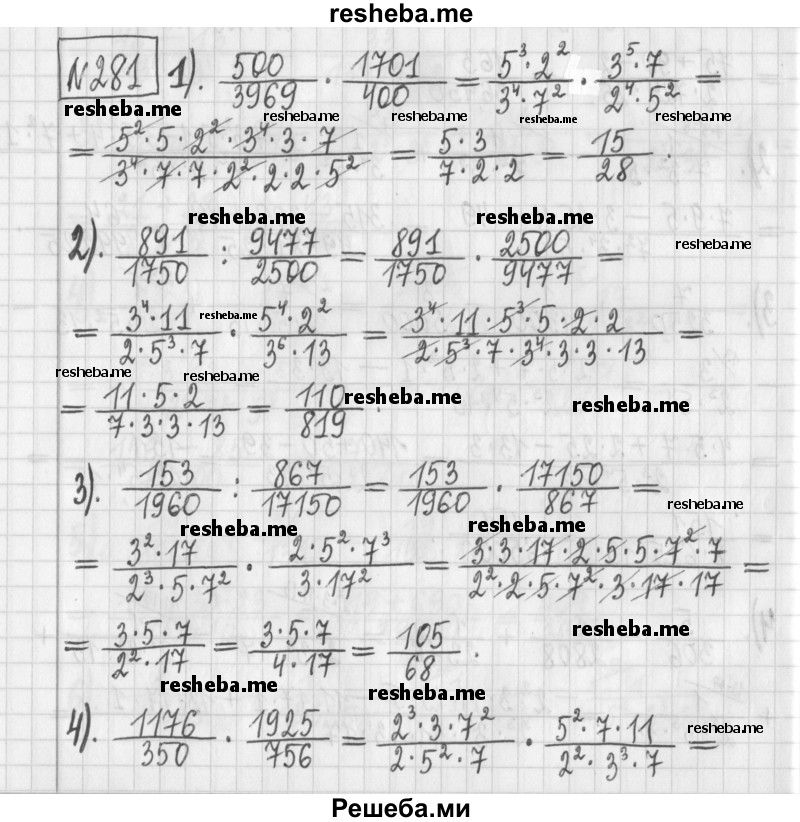 resheba.me
№281 1). 500/3969 · 1701/400 = 5³·2²/3⁴·7² · 3⁵·7/2⁴·5² =
resheba.me resheba.me resheba.me resheba.me
= 5²·5·2²·3⁴·3·7/3⁴·7·7·2²·2·2·5² = 5·3/7·2·2 = 15/28.
resheba.me resheba.me
2). 891/1750 : 9477/2500 = 891/1750 · 2500/9477 = resheba.me
= 3⁴·11/2·5³·7 resheba.me · 5⁴·2²/3⁶·13 = 3⁴·11·5³·5·2·2/2·5³·7·3⁴·3·3·13 =
resheba.me resheba.me
= 11·5·2/7·3·3·13 = 110/819. resheba.me resheba.me
3). 153/1960 : 867/17150 = 153/1960 · 17150/867 = resheba.me
resheba.me resheba.me
= 3²·17/2³·5·7² · 2·5²·7³/3·17² = 3·3·17·2·5·5·7²·7/2²·2·5·7²·3·17·17 =
= 3·5·7/2²·17 = 3·5·7/4·17 = 105/68. resheba.me
resheba.me resheba.me
4). 1176/350 · 1925/756 = 2³·3·7²/2·5²·7 · 5²·7·11/2²·3³·7 = resheba.me
Решеба.ми